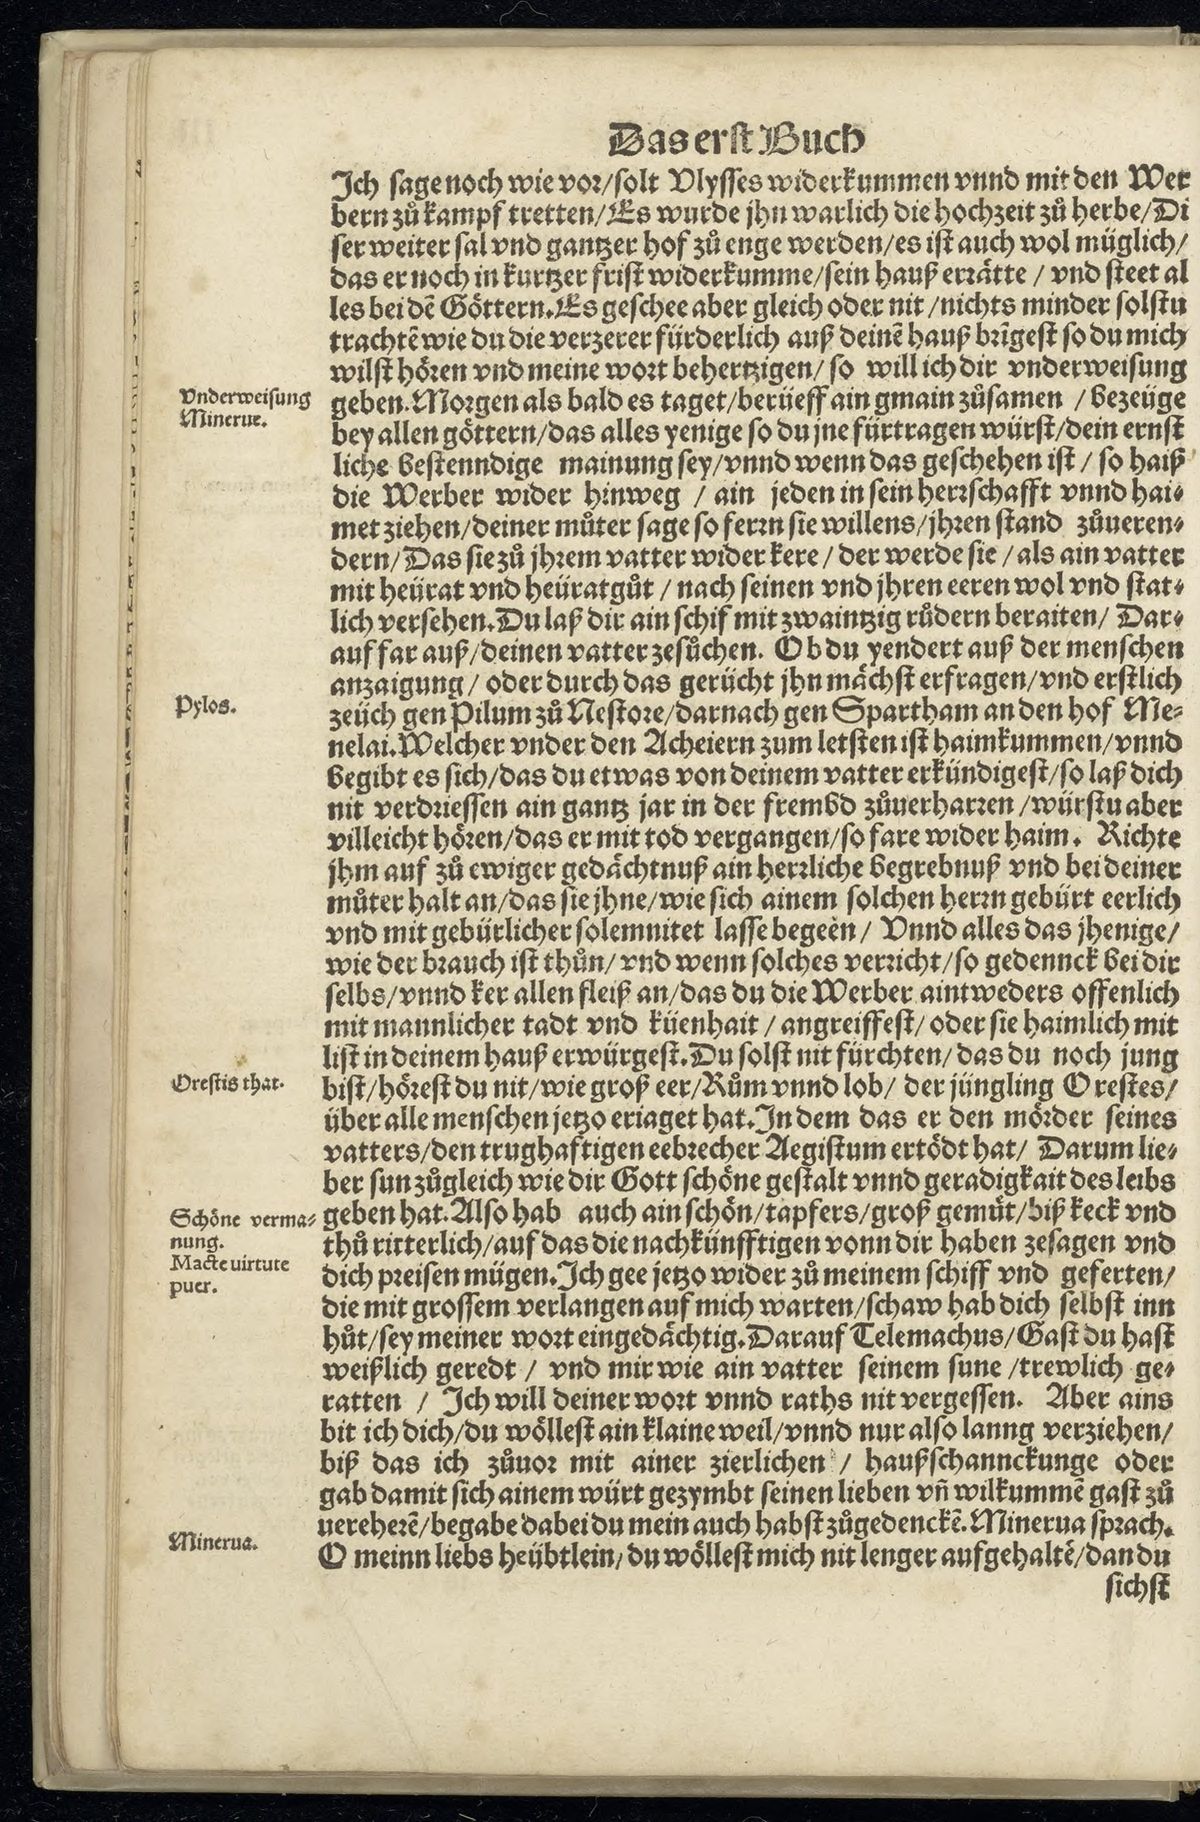 Das erst Buch
Ich sage noch wie vor/solt Vlysses widerkummen vnnd mit den Wer
bern zů kampf tretten/Es wurde jhn warlich die hochzeit zů herbe/Di
ser weiter sal vnd gantzer hof zů enge werden/es ist auch wol müglich/
das er noch in kurtzer frist widerkumme/sein hauß erꝛätte / vnd steet al
les bei dẽ Göttern. Es geschee aber gleich oder nit /nichts minder solstu
trachtẽ wie du die verzerer fürderlich auß deinẽ hauß bꝛĩgest so du mich
wilst hören vnd meine woꝛt behertzigen/ so will ich dir vnderweisung
Vnderweisung
Mineruę.
geben. Moꝛgen als bald es taget/berüeff ain gmain zůsamen / bezeüge
bey allen göttern/das alles yenige so du jne fürtragen würst/dein ernst
liche bestenndige mainung sey/vnnd wenn das geschehen ist / so haiß
die Werber wider hinweg / ain jeden in sein herꝛschafft vnnd hai⸗
met ziehen/deiner můter sage so ferꝛn sie willens/jhꝛen stand zůueren⸗
dern/Das sie zů jhꝛem vatter wider kere / der werde sie / als ain vatter
mit heürat vnd heüratgůt / nach seinen vnd jhren eeren wol vnd stat⸗
lich versehen. Du laß dir ain schif mit zwaintzig růdern beraiten/ Dar⸗
auf far auß/deinen vatter zesůchen. Ob du yendert auß der menschen
anzaigung/ oder durch das gerücht jhn mächst erfragen/vnd erstlich
Pylos.
zeüch gen Pilum zů Nestoꝛe/darnach gen Spartham an den hof Me⸗
nelai. Welcher vnder den Acheiern zum letsten ist haimkummen/vnnd
begibt es sich/das du etwas von deinem vatter erkündigest/so laß dich
nit verdꝛiessen ain gantz jar in der frembd zůuerharꝛen /würstu aber
villeicht höꝛen/das er mit tod vergangen/so fare wider haim. Richte
jhm auf zů ewiger gedächtnuß ain herꝛliche begrebnuß vnd bei deiner
můter halt an/das sie jhne/wie sich ainem solchen herꝛn gebürt eerlich
vnd mit gebürlicher solemnitet lasse begeen/ Vnnd alles das jhenige/
wie der bꝛauch ist thůn/ vnd wenn solches verꝛicht/so gedennck bei dir
selbs/vnnd ker allen fleiß an/das du die Werber aintweders offenlich
mit mannlicher tadt vnd küenhait / angreiffest/ oder sie haimlich mit
list in deinem hauß erwürgest. Du solst nit fürchten/das du noch jung
Orestis that.
bist/höꝛest du nit/wie groß eer/Rům vnnd lob/ der jüngling Orestes/
über alle menschen jetzo eriaget hat. In dem das er den möꝛder seines
vatters/den trughaftigen eebꝛecher Aegistum ertödt hat/ Darum lie⸗
ber sun zůgleich wie dir Gott schöne gestalt vnnd geradigkait des leibs
Schöne verma⸗
nung.
Macte uirtute
puer.
geben hat. Also hab auch ain schön/tapfers/groß gemüt/biß keck vnd
thů ritterlich/auf das die nachkünfftigen vonn dir haben zesagen vnd
dich pꝛeisen mügen. Ich gee jetzo wider zů meinem schiff vnd geferten/
die mit grossem verlangen auf mich warten/schaw hab dich selbst inn
hůt/sey meiner woꝛt eingedächtig. Darauf Telemachus/Gast du hast
weißlich geredt / vnd mir wie ain vatter seinem sune /trewlich ge⸗
ratten / Ich will deiner woꝛt vnnd raths nit vergessen. Aber ains
bit ich dich/du wöllest ain klaine weil/vnnd nur also lanng verziehen/
biß das ich zůuoꝛ mit ainer zierlichen / haußschannckunge oder
gab damit sich ainem würt gezymbt seinen lieben vñ wilkummẽ gast zů
uereherẽ/begabe dabei du mein auch habst zůgedenckẽ. Minerua spꝛach.
Minerua.
O meinn liebs heübtlein/du wöllest mich nit lenger aufgehaltẽ/dan du
sichst